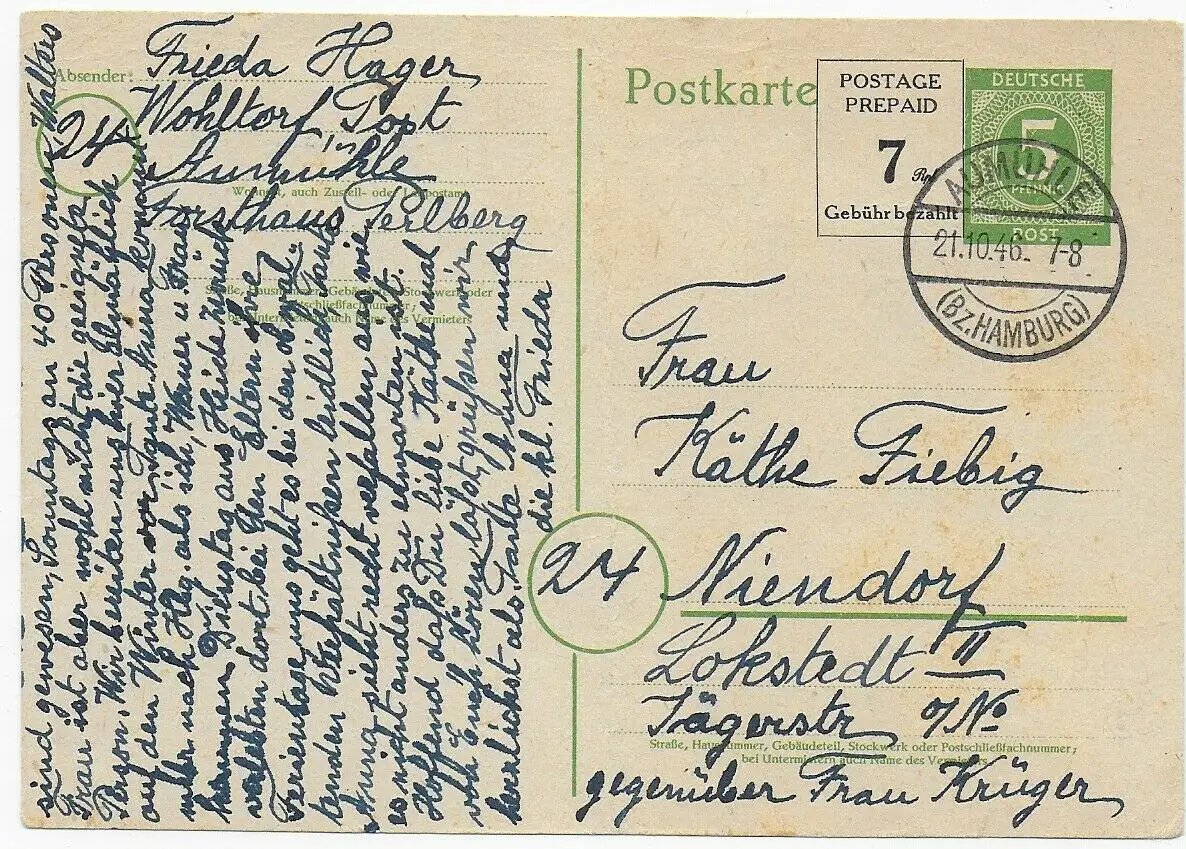 Absender: Frieda Hager
Wohltorf, Post
24 Aumühle
Wohnort, auch Zustell- oder Leitpostamt
Forsthaus Perlberg
Straße, Hausnummer, Gebäudeteil, Stockwerk oder
Postschließfachnummer;
bei Untermietern auch Name des Vermieters
Postkarte
POSTAGE
PREPAID
7 Rpf
Gebühr bezahlt
DEUTSCHE
5
PFENNIG
POST
AUMÜHLE
21.10.46. 7-8
(BZ.HAMBURG)
Frau
Käthe Fiebig
24 Niendorf
Lokstedt II
Jägerstr o/No
Straße, Hausnummer, Gebäudeteil, Stockwerk oder Postschließfachnummer;
bei Untermietern auch Name des Vermieters
gegenüber Frau Krüger
sind gewesen, Sonntag an 40 Personen, Walters
Frau ist aber wohl nicht die geeignete
Person. Wir bereiten uns hier allmählich
auf den Winter vor. Tante Anna kommt
nach Hbg. als sich, Werner u. Frau
kommen Dienstag aus Heide zurück
dort bei den Eltern
uns geht es bei den
Verhältnißen leidlich
Anning sieht recht verfallen aus, wie
es nicht anders zu erwarten ist.
Hoffend daß Du liebe Käthe mal
von Euch hören läßt grüßen wir
herzlichst als Tante Anna und
die kl. Frieda